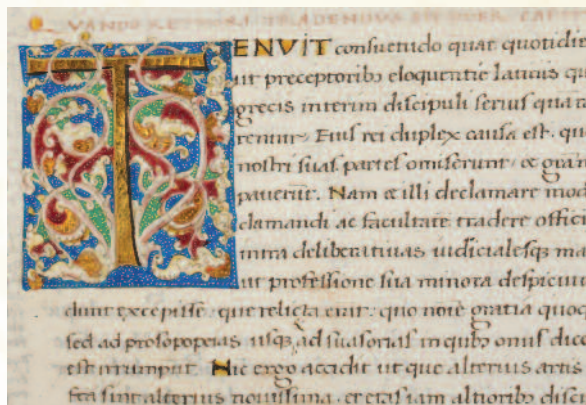 QUANDO RETHORI TRADENDUS SIT PUER CAPI
TENVIT consuetudo quae quotidie
ut preceptorib₃ eloquentie latinis qu
grecis interim discipuli serius qua
rentur. Eius rei duplex causa est. qu
nostri suas partes omiserunt: & gram
pauerūt. Nam & illi declamare mod
clamandi ac facultate tradere offici
intra deliberatiuas iudicialesq₃ ma
ut professione sua minora despiciu
dunt excepisse: que relicta erant: quo noīe gratia quoq
sed ad prosopopeias usq₃ ad suasorias in quib₃ onus dice
est irrumpūt. Hic ergo accidit ut que alterius artis
sint alterius nouissima. et etas iam altiorib₃ disci